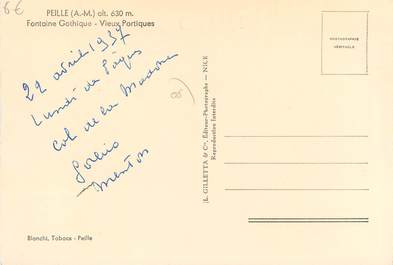 6€
PEILLE (A.-M.) alt. 630 m.
Fontaine Gothique - Vieux Portiques
22 avril 1957
Lundi de Pâques
Col de la Madone
Gorbio
Menton
PHOTOGRAPHIE
VÉRITABLE
(L. GILLETTA & Cie, Éditeur-Photographe — NICE
Reproduction Interdite
Bianchi, Tabacs - Peille